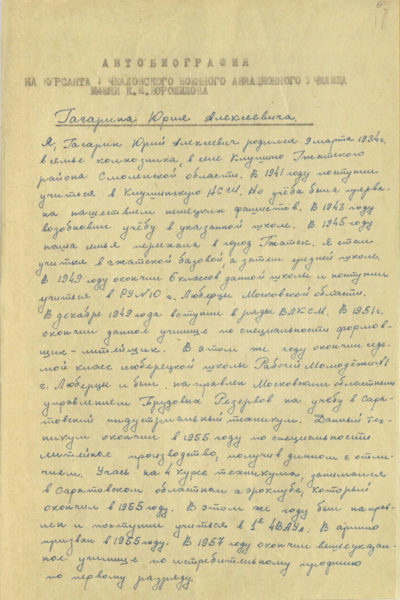 7
АВТОБИОГРАФИЯ
НА КУРСАНТА 1 ЧКАЛОВСКОГО ВОЕННОГО АВИАЦИОННОГО УЧИЛИЩА
ИМЕНИ К.Е. ВОРОШИЛОВА
Гагарина Юрия Алексеевича.
Я, Гагарин Юрий Алексеевич родился 9 марта 1934г.
в семье колхозника, в селе Клушино Гжатского
района Смоленской области. В 1941 году поступил
учиться в Клушинскую НСШ. Но учёба была прерва-
на нашествием немецких фашистов. В 1943 году
возобновил учёбу в указанной школе. В 1945 году
наша семья переехала в город Гжатск. Я стал
учиться в гжатской базовой, а затем средней школе.
В 1949 году окончил 6 классов данной школы и поступил
учиться в РУ №10 г. Люберцы Московской области.
В декабре 1949 года вступил в ряды ВЛКСМ. В 1951г.
окончил данное училище по специальности формов-
щик-литейщик. В этом же году окончил седь-
мой класс люберецкой школы Рабочей Молодёжи №1
г. Люберцы и был направлен Московским областным
управлением Трудовых Резервов на учёбу в Сара-
товский индустриальный техникум. Данный тех-
никум окончил в 1955 году по специальности
литейное производство, получив диплом с отли-
чием. Учась на 4 курсе техникума, занимался
в Саратовском областном аэроклубе, который
окончил в 1955 году. В этом же году был направ-
лен и поступил учиться в 1е ЧВАУЛ. В армию
призван в 1955 году. В 1957 году окончил вышеуказан-
ное училище по истребительному профилю
по первому разряду.